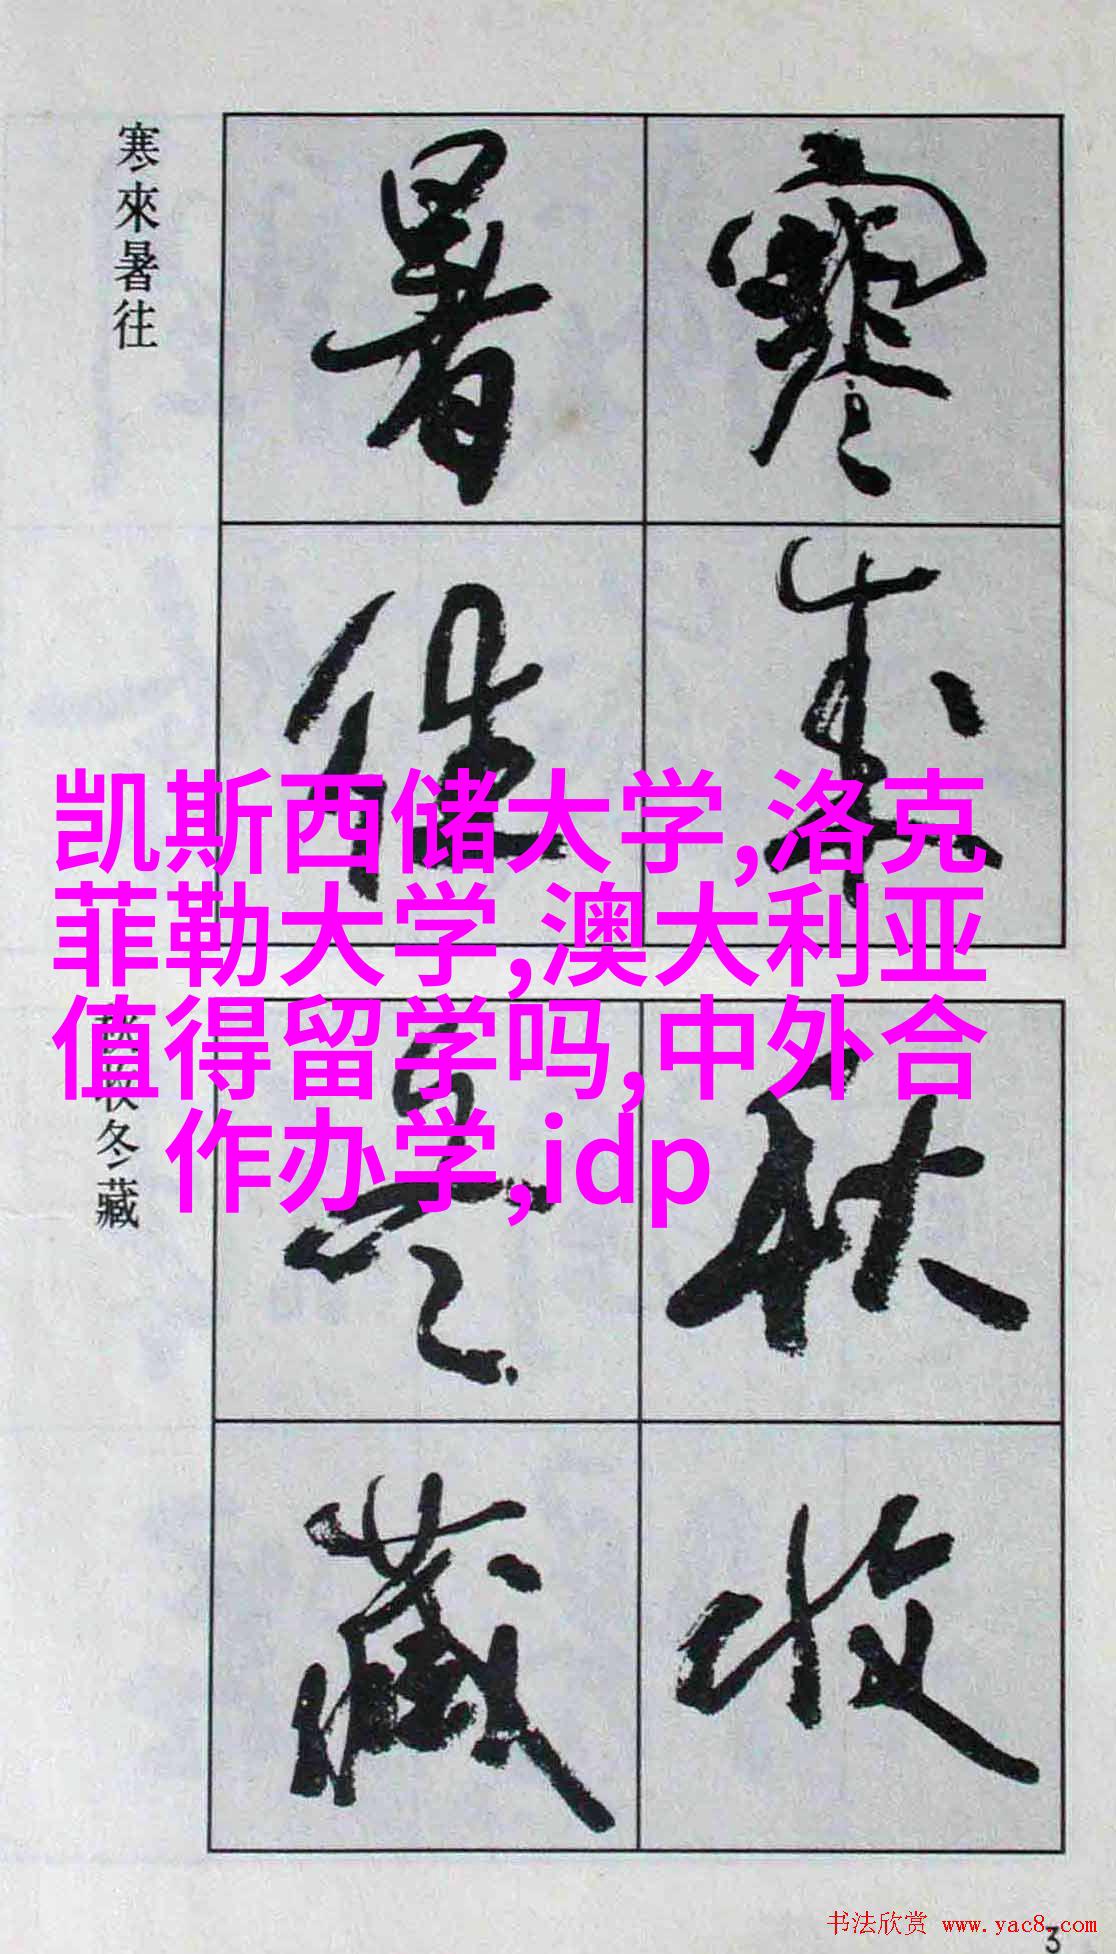 寒來暑往
寒来
暑往
凯斯西储大学,洛克
菲勒大学,澳大利亚
值得留学吗,中外合
作办学,idp
秋收冬藏
秋收
冬藏
书法欣赏 www.yac8.com
3